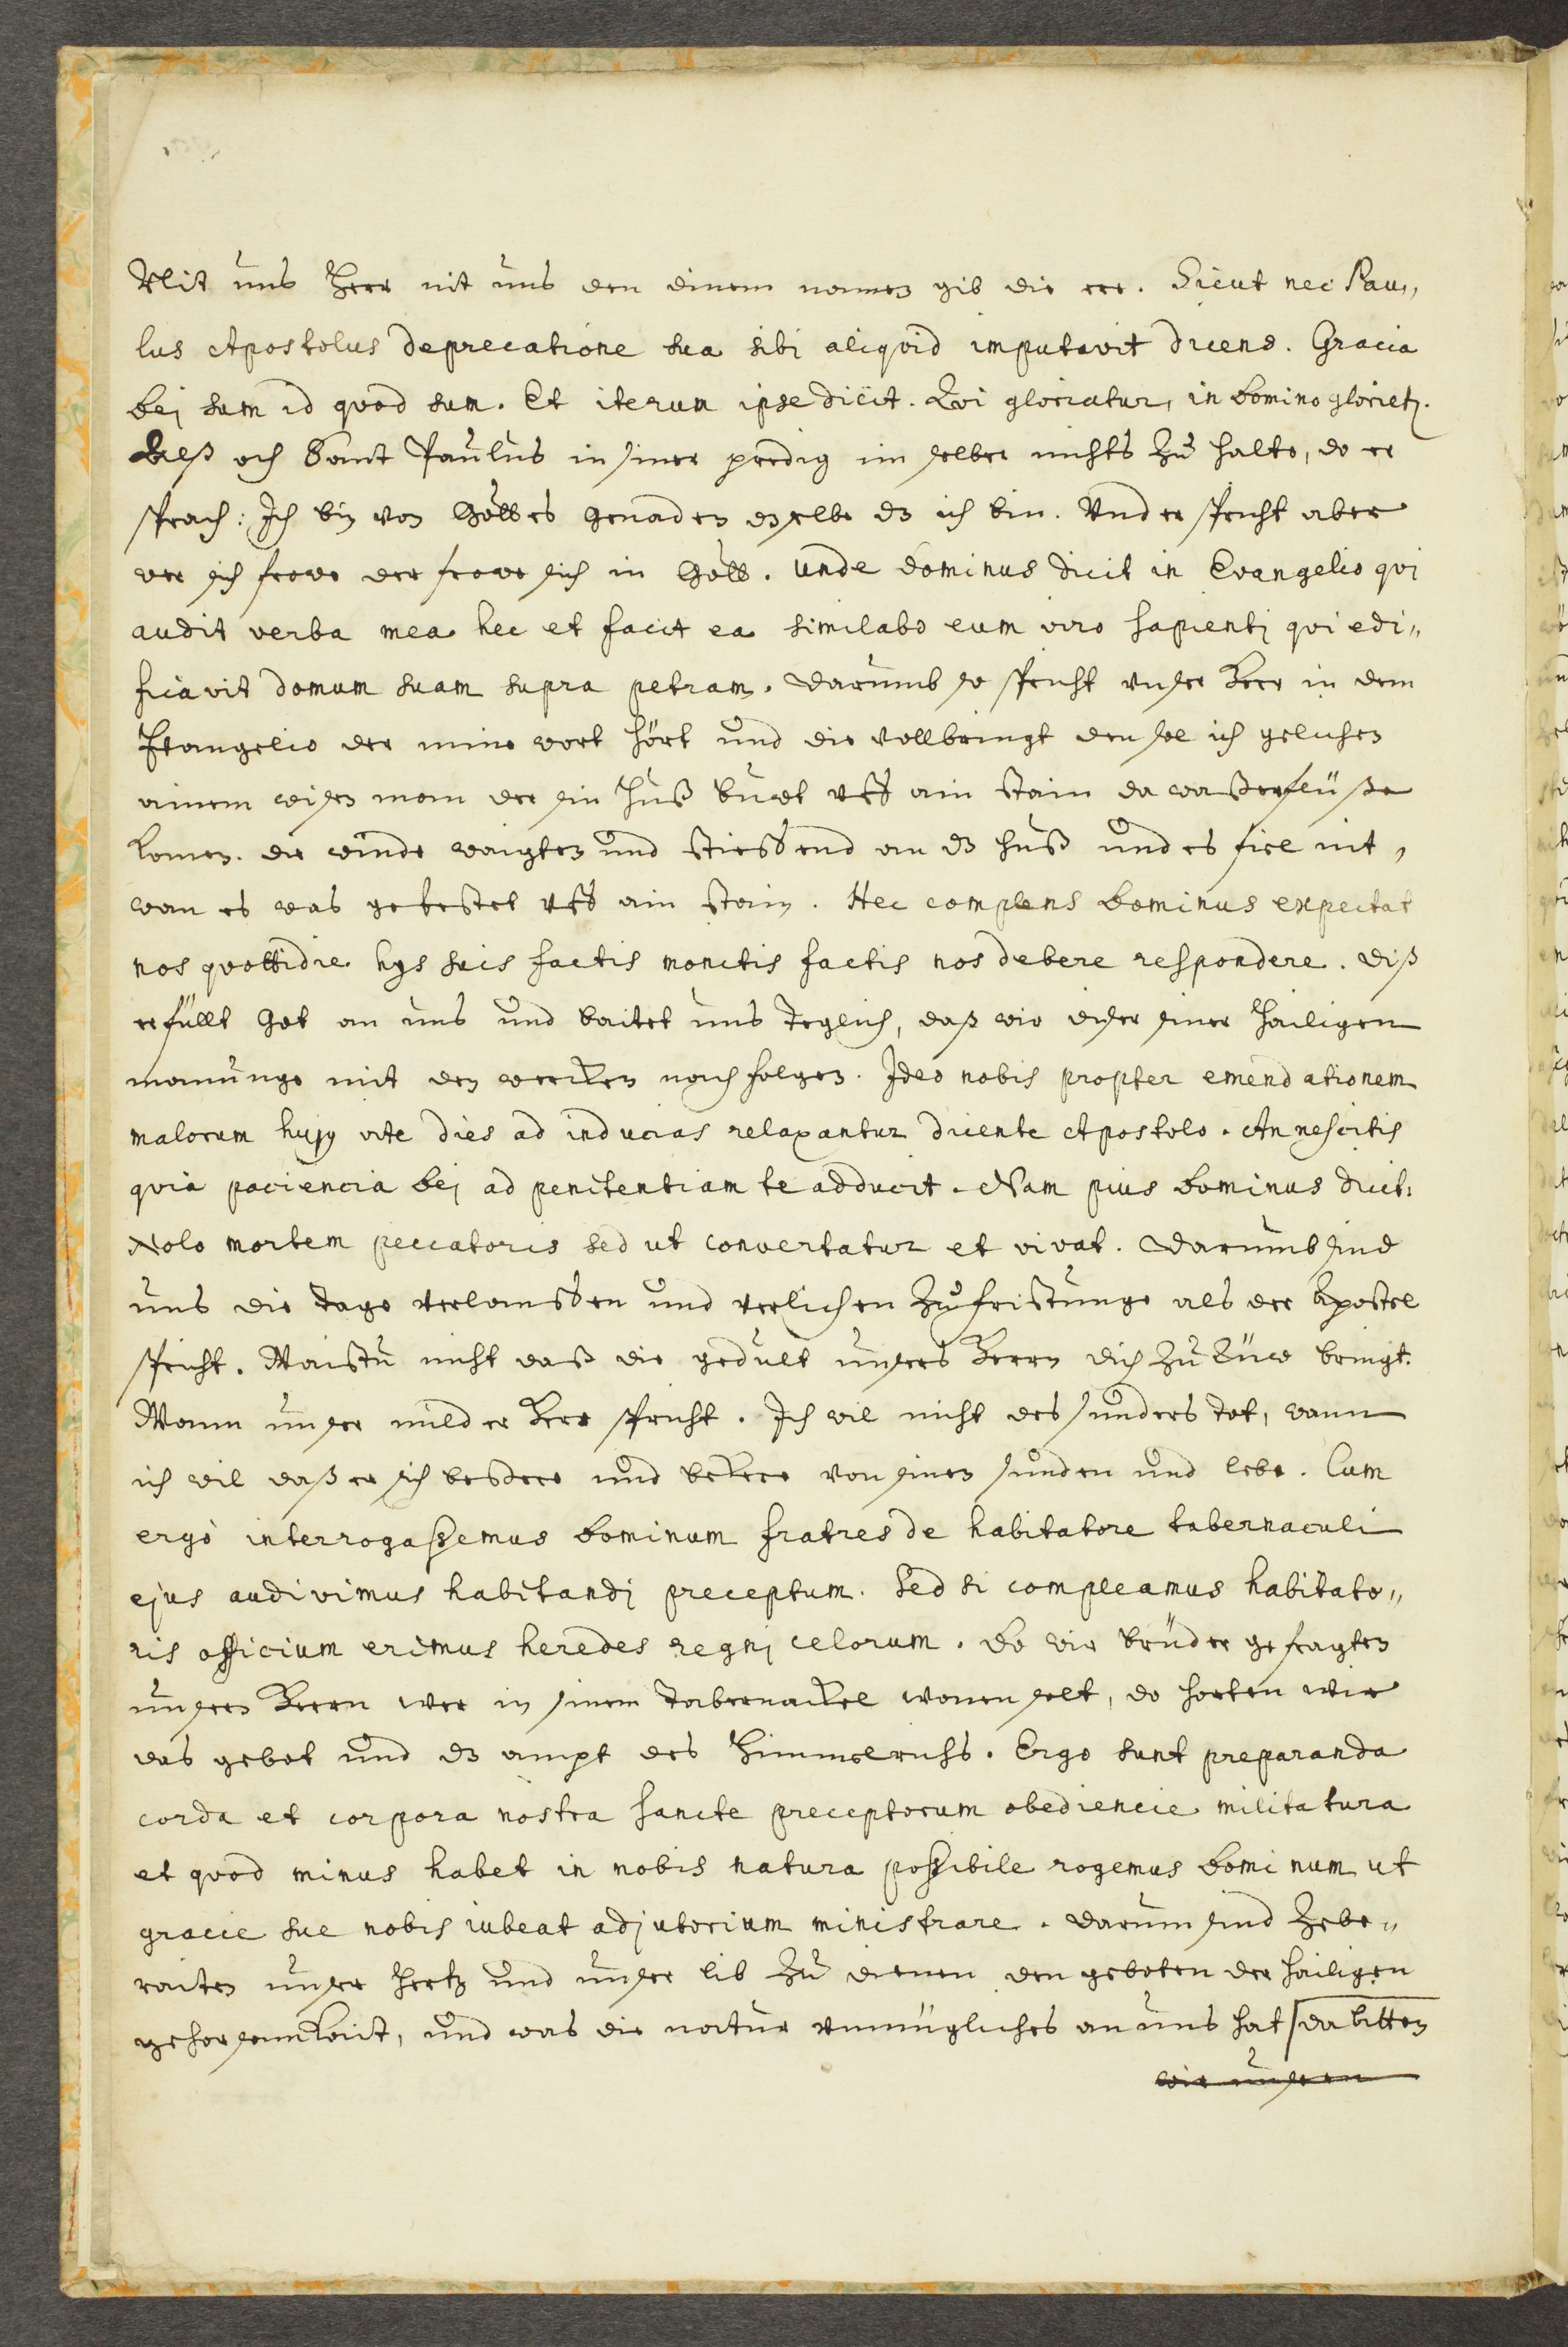 Nit uns Herr nit uns den dinem namen gib die ere. Sicut nec Pau„
lus Apostolus de precatione sua sibi aliqvid imputavit dicens. Gracia
Dej sum id qvod sum. Et iterum ipse dicit. Qvi gloriatur, in Domino glorietz.
Alß och Sant Paulus in siner predig im selber nichts zu halte, do er
sprach: Ich bin von Gottes genaden dz selbe dz ich bin. Vnd er spricht aber
wer sich frowe der frowe sich in Gott. Unde Dominus dicit in Evangelio qvi
audit verba mea hec et facit ea similabo eum viro sapientj qvi edi„
ficavit domum suam supra petram. Darumb so spricht unser Herr in dem
Evangelio der mine wort hört und die vollbringt den sol ich gelichen
ainem wisen man der sin huß buwt uff ain stain da waßerflüße
komen. die winde waigten und stiessend an dz huß und es fiel nit,
wan es was gevestet uff ain stain. Hec complens Dominus expectat
nos qvottidie hys suis factis monitis factis nos debere respondere. Diß
erfüllt Got an uns und baitet uns teglich, daß wir diser siner hailigen
manunge mit den wercken nach folgen. Ideo nobis propter emendationem
malorum hujy vite dies ad inducias relaxantur dicente Apostolo. An nescitis
qvia paciencia Dej ad penitentiam te adducit. Nam pius Dominus dicit:
Nolo mortem peccatoris sed ut convertatur et vivat. Darumb sind
uns die tage verlaussen und verlichen zu fristunge als der Apostel
spricht. Waistu nicht daß die gedult unsers Herrn dich zu rüw bringt.
Wann unser milder Herr spricht. Ich wil nicht des sunders tot, wann
ich wil daß er sich bessere und bekere von sinen sunden und lebe. Cum
ergò interrogassemus Dominum fratres de habitatore tabernaculi
ejus audivimus habitandj preceptum. Sed si compleamus habitato„
ris officium erimus heredes regnj celorum. Do wir brüder gefragten
unsern Herrn wer in sinem tabernackel wonen solt, do horten wir
das gebot und dz ampt des Himmelrichs. Ergo sunt preparanda
corda et corpora nostra sancte preceptorum obediencie militatura
et qvod minus habet in nobis natura possibile rogemus Dominum ut
gracie sue nobis iubeat adjutorium ministrare. Darum sind zebe„
raiten unser hertz und unser lib zu dienen den geboten der hailigen
gehorsamkait, und was die natur unmügliches an uns hat da bitten
wir unseren